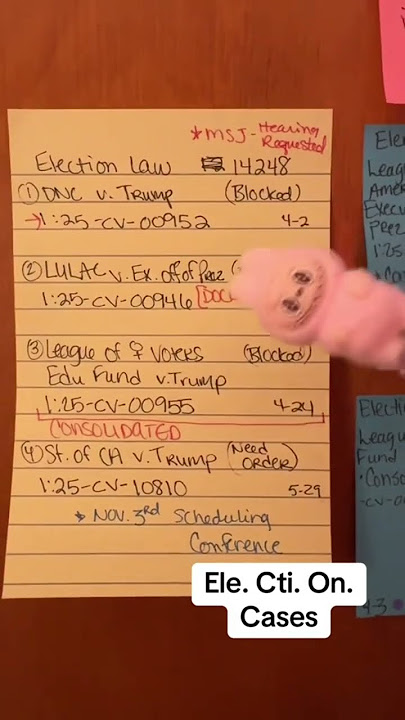 *MSJ - Hearing
Requested
Election Law 14248
① DNC v. Trump (Blocked)
→1:25-CV-00952 4-2
② LULAC v. Ex. off of Prez
1:25-CV-00946 [DOC
③ League of ♀ Voters (Blocked)
Edu Fund v. Trump
1:25-CV-00955 4-24
CONSOLIDATED
④ St. of CA v. Trump (Need
ORDER)
1:25-CV-10810 5-29
* Nov. 3rd Scheduling
Conference
Ele
Leag
Amer
Execu
Prez
1:25
Electi
League
Fund
• Conso
-cv-0
4-3
Ele. Cti. On.
Cases